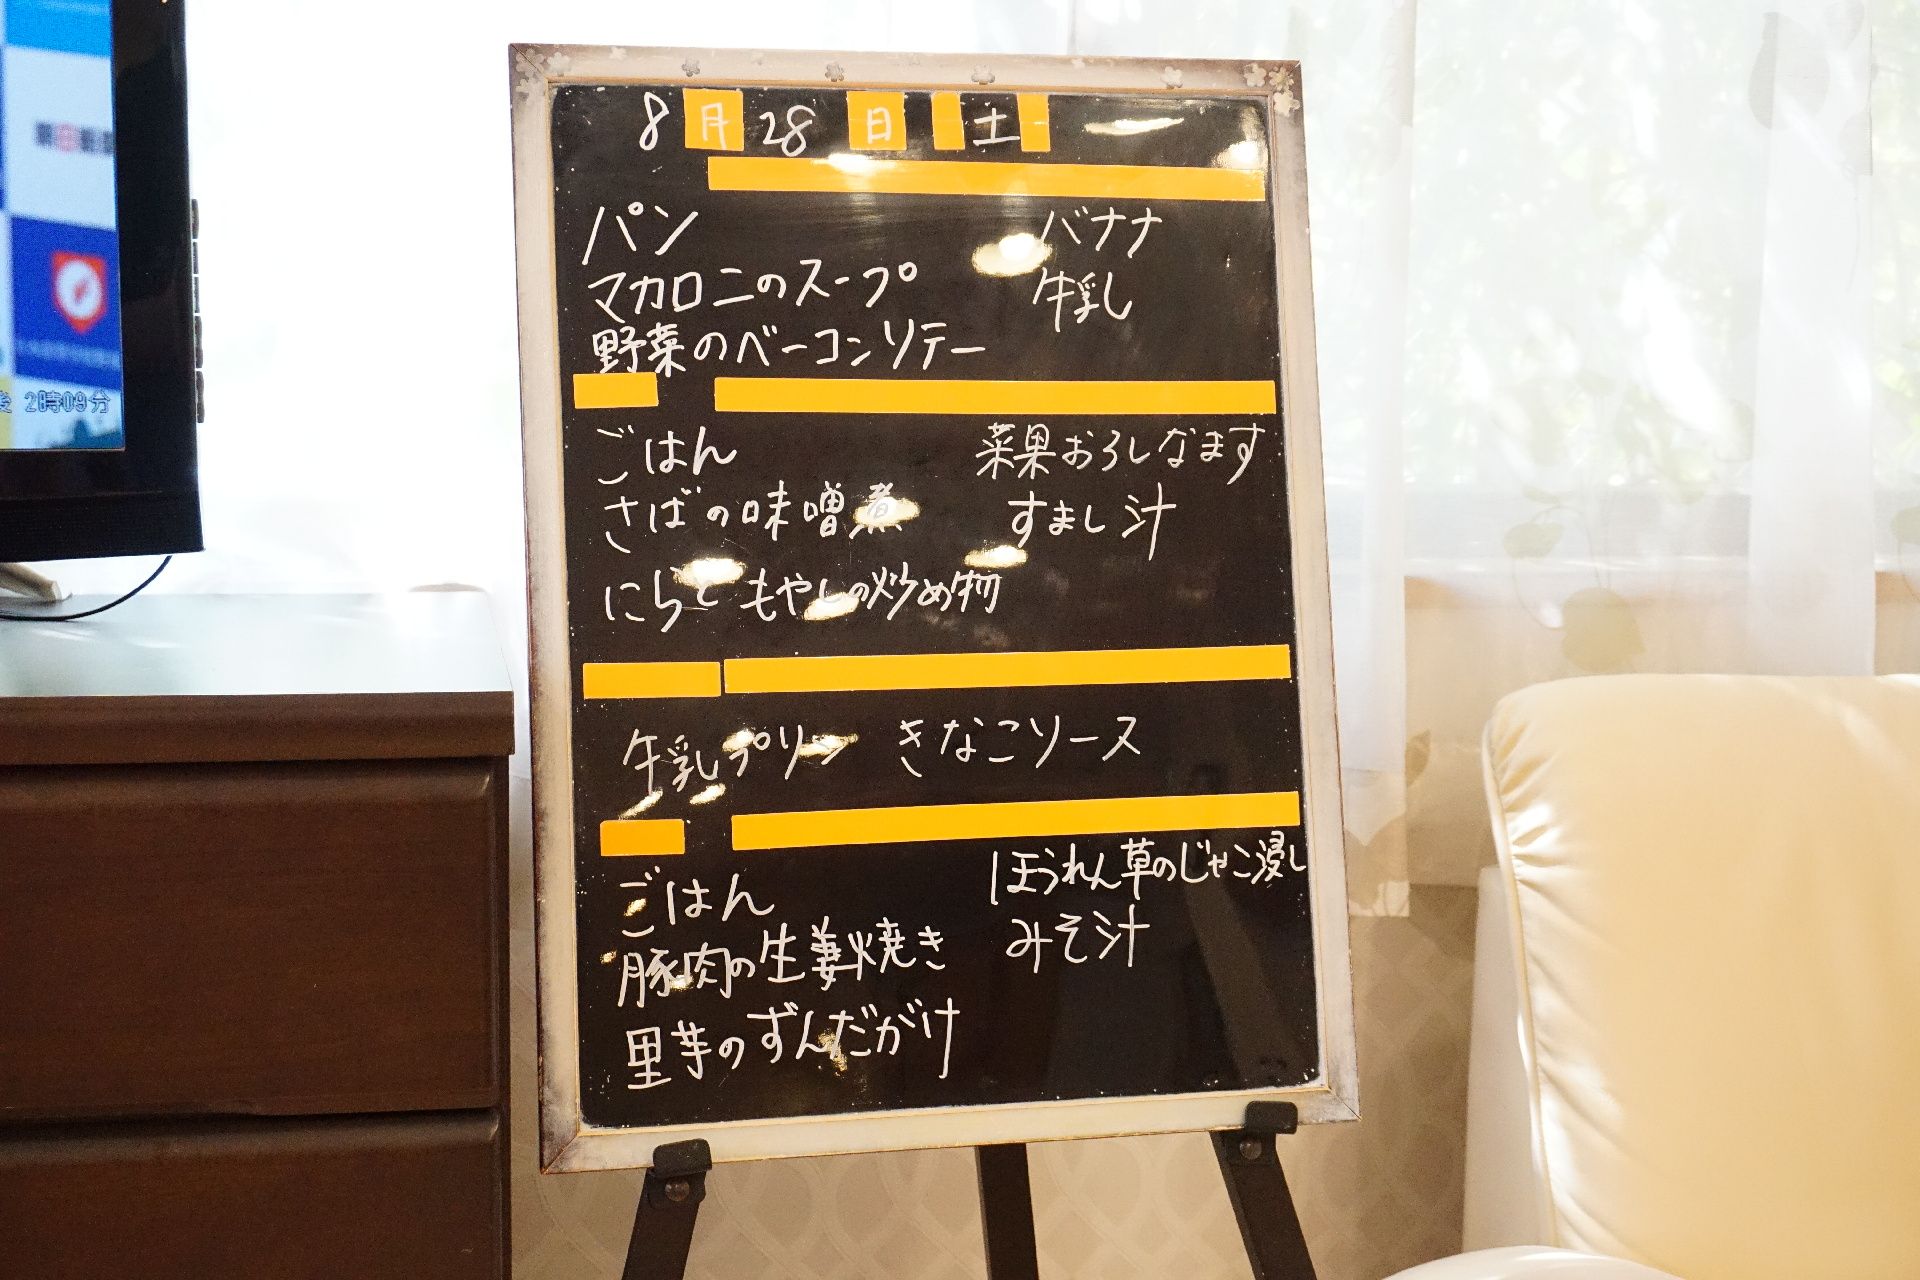 8月28日 土
パン
バナナ
マカロニのスープ
牛乳
野菜のベーコンソテー
ごはん
菜果おろしなます
さばの味噌煮
すまし汁
にらともやしの炒め物
牛乳プリン きなこソース
ごはん
ほうれん草のじゃこ浸し
豚肉の生姜焼き
みそ汁
里芋のずんだがけ
2時09分